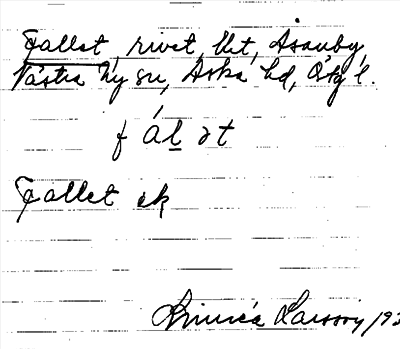 Fallet, rivet, lht, Åsarby,
Västra Ny sn, Aska hd, Ög l.
f á l ə t
Fallet ek
Linnéa Larsson 193